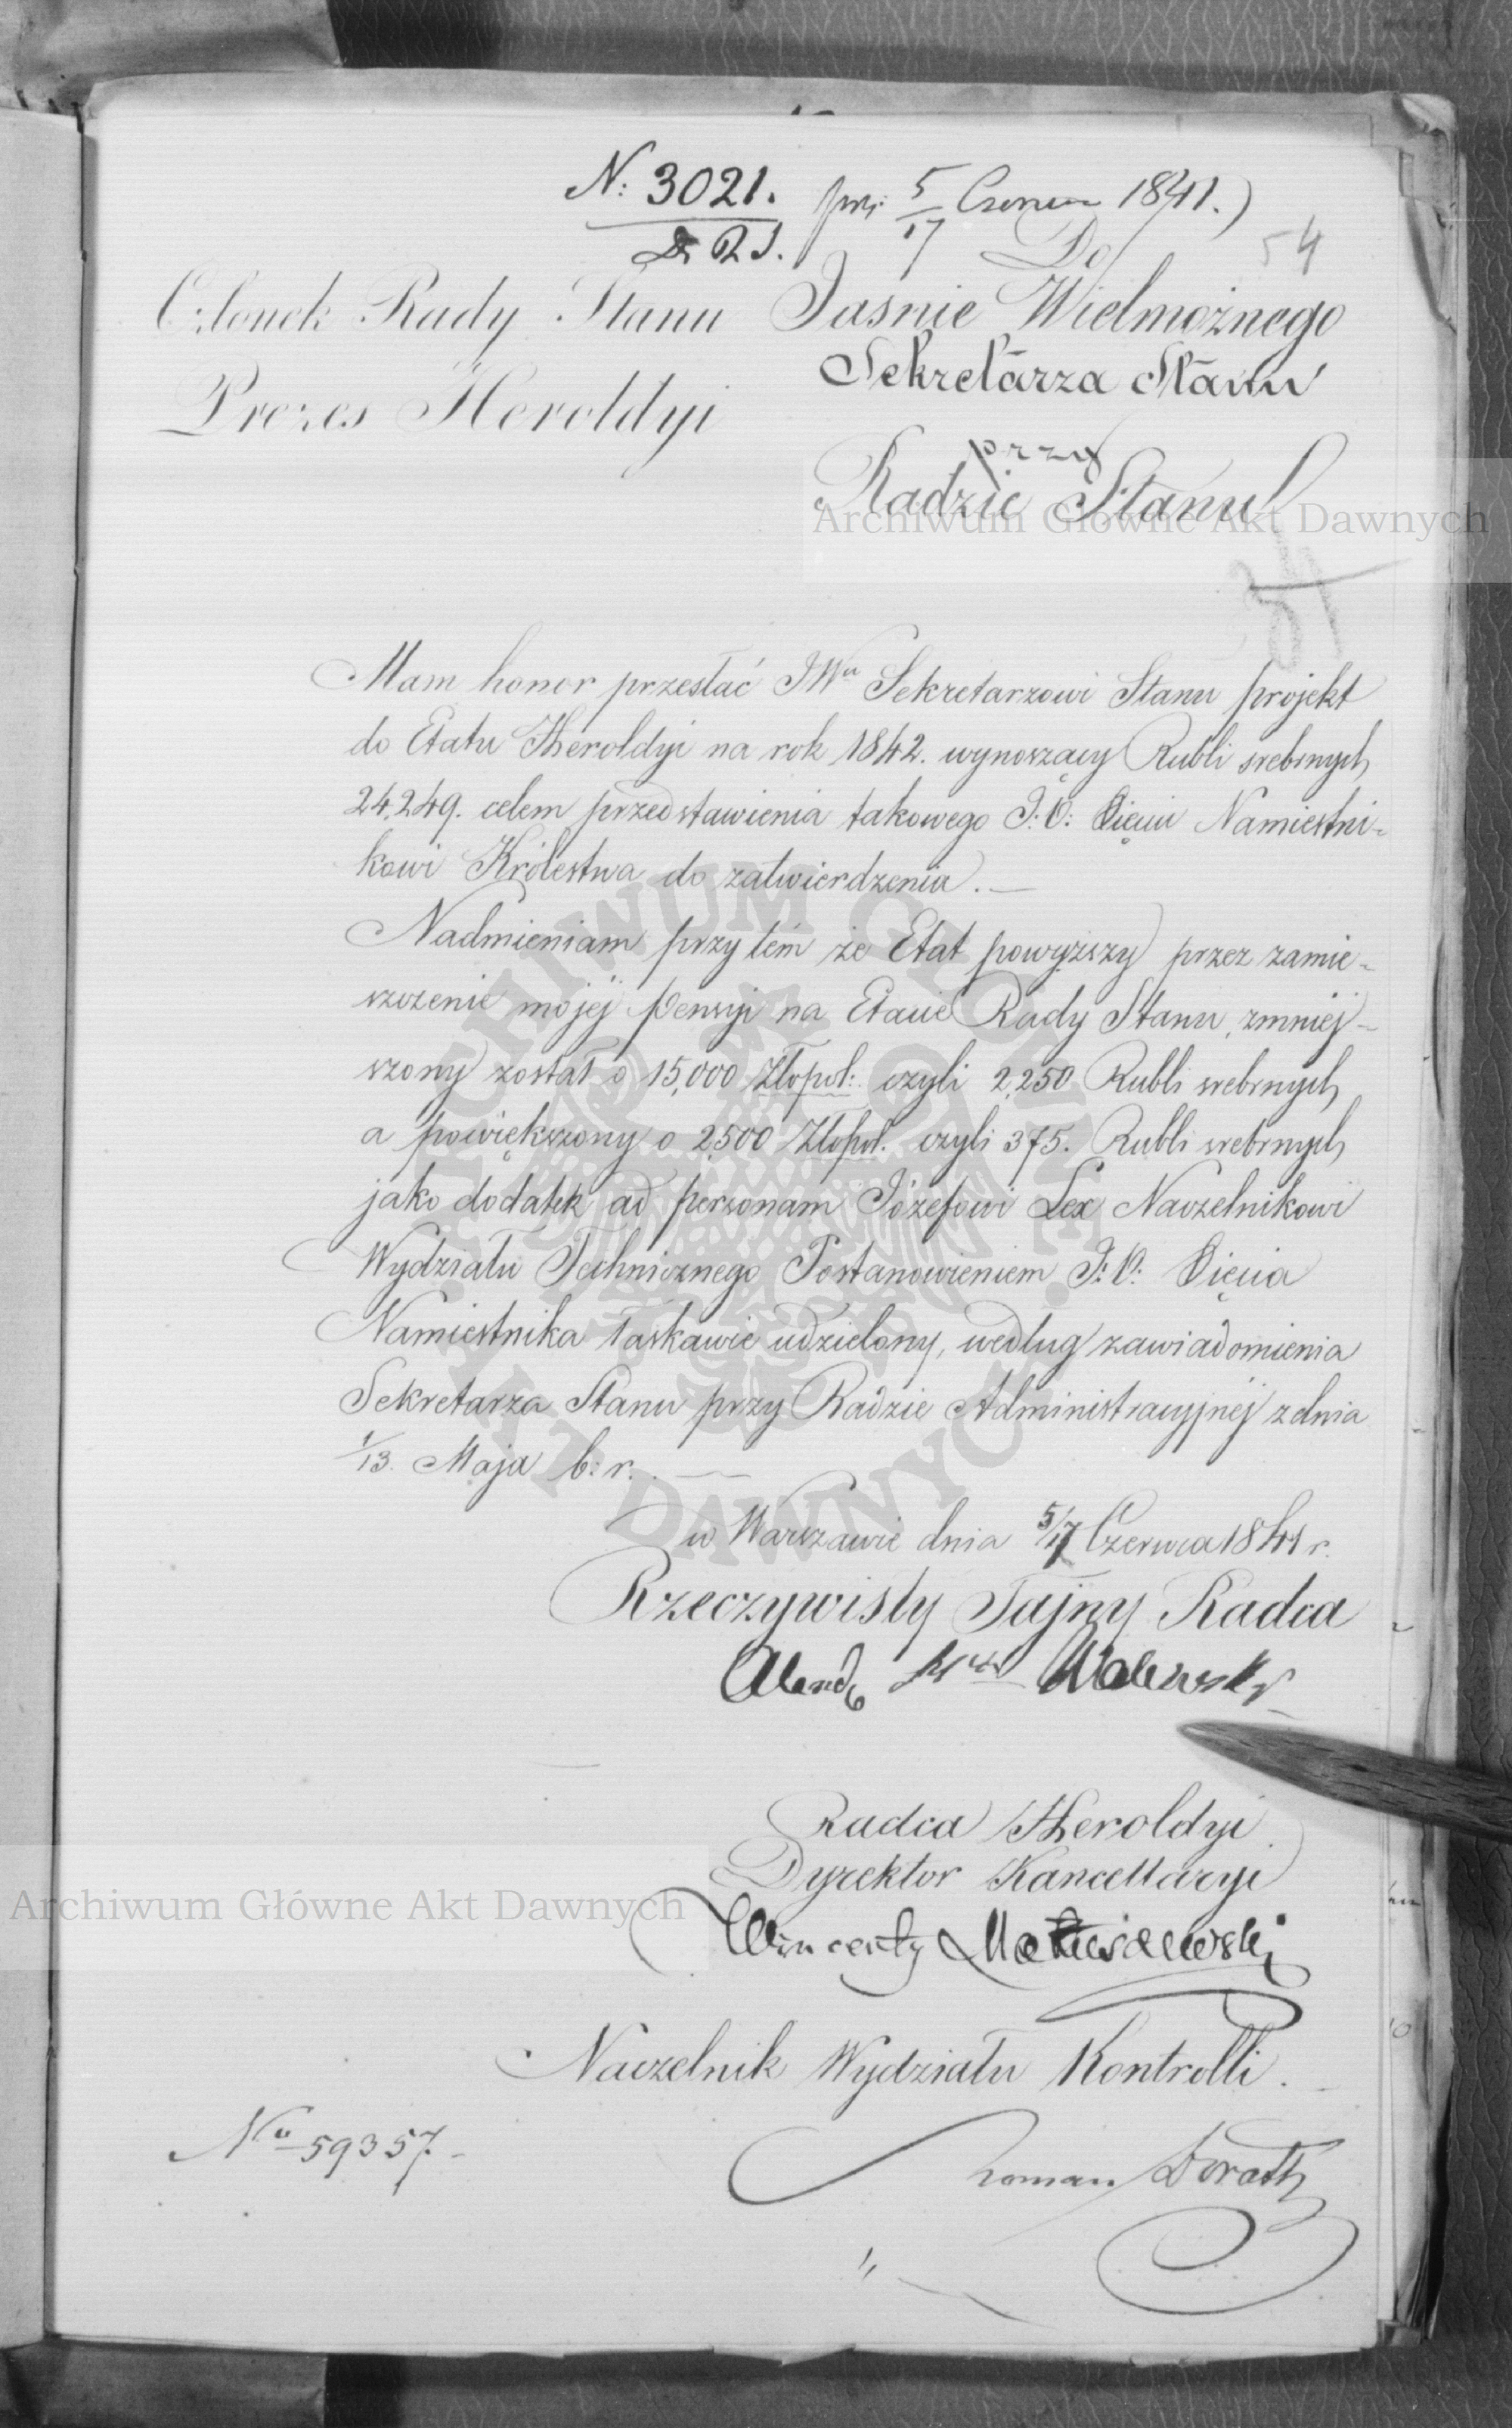 N: 3021. prz: 5/17 Czerwca 1841.
D. R. S.
54
Do
Członek Rady Stanu
Prezes Heroldyi
Jaśnie Wielmożnego
Sekretarza Stanu
przy
Radzie Stanu
Archiwum Główne Akt Dawnych
Mam honor przesłać JWu Sekretarzowi Stanu projekt
do Etatu Heroldyi na rok 1842. wynoszący Rubli srebrnych
24,249. celem przedstawienia takowego J: O: Xięciu Namiestni-
kowi Królestwa do zatwierdzenia. —
Nadmieniam przytém że Etat powyższy przez zamie-
szczenie mojéj Pensyi na Etacie Rady Stanu, zmniéj-
szony został o 15,000 Złopol: czyli 2,250 Rubli srebrnych
a powiększony o 2,500 Złopol. czyli 375. Rubli srebrnych
jako dodatek ad personam Józefowi Lex Naczelnikowi
Wydziału Technicznego Postanowieniem J: O: Xięcia
Namiestnika łaskawie udzielony, według zawiadomienia
Sekretarza Stanu przy Radzie Administracyjnéj z dnia
1/13. Maja b: r. —
w Warszawie dnia 5/17 Czerwca 1841 r.
Rzeczywisty Tajny Radca
Walewski
Radca Heroldyi
Dyrektor Kancellaryi
Archiwum Główne Akt Dawnych
Wincenty Matuszewski
Naczelnik Wydziału Kontrolli.
No 59357. -
Roman
ARCHIWUM GŁÓWNE AKT DAWNYCH